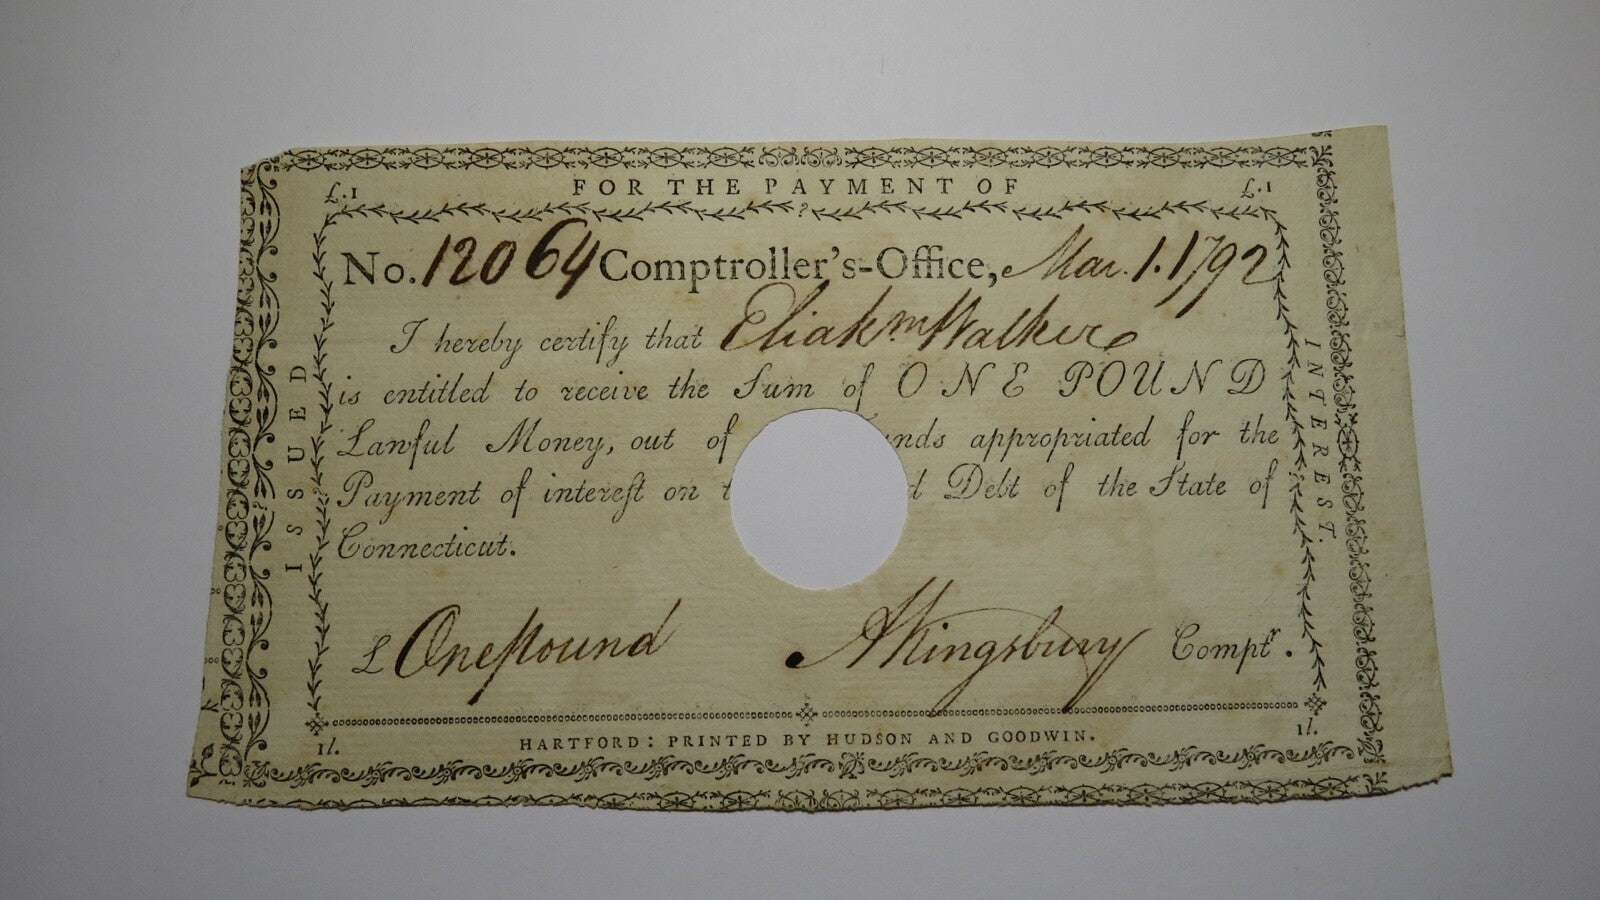 FOR THE PAYMENT OF
£.1 £.1
No. 12064 Comptroller's-Office, Mar. 1. 1792
I hereby certify that Eliakm Walker
is entitled to receive the Sum of ONE POUND
Lawful Money, out of unds appropriated for the
Payment of interest on t d Debt of the State of
Connecticut.
£ One pound AKingsbury Comptr.
1l. 1l.
HARTFORD: PRINTED BY HUDSON AND GOODWIN.
ISSUED
INTEREST.